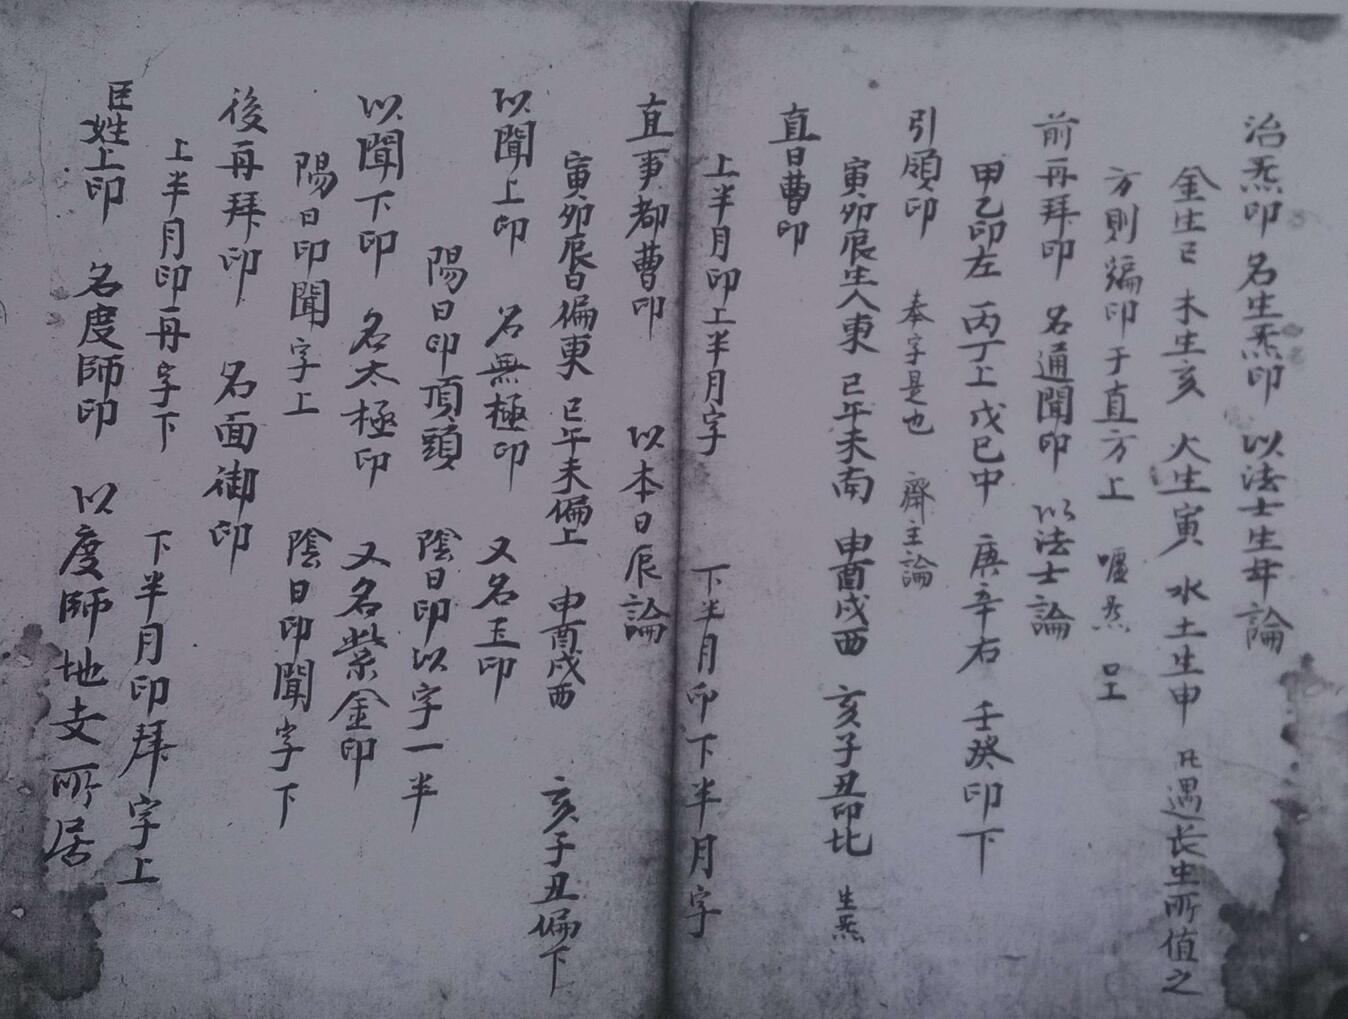 治炁印 名生炁印 以法士生年論
金生巳 木生亥 火生寅 水土生申 凡遇长生所值之
方則編印于直方上 嘘炁 呈
前再拜印 名通聞印 以法士論
甲乙印左 丙丁上 戊巳中 庚辛右 壬癸印下
引領印 奉字是也 齋主論
寅卯辰生人東 巳午未南 申酉戌西 亥子丑印北 生炁
直日曹印
上半月印上半月字 下半月印下半月字
直事都曹印 以本日辰論
寅卯辰日偏東 巳午未偏上 申酉戌西 亥子丑偏下
以聞上印 名無極印 又名玉印
陽日印頂頭 陰日印以字一半
以聞下印 名太極印 又名紫金印
陽日印聞字上 陰日印聞字下
後再拜印 名面御印
上半月印再字下 下半月印拜字上
臣姓上印 名度師印 以度師地支所居